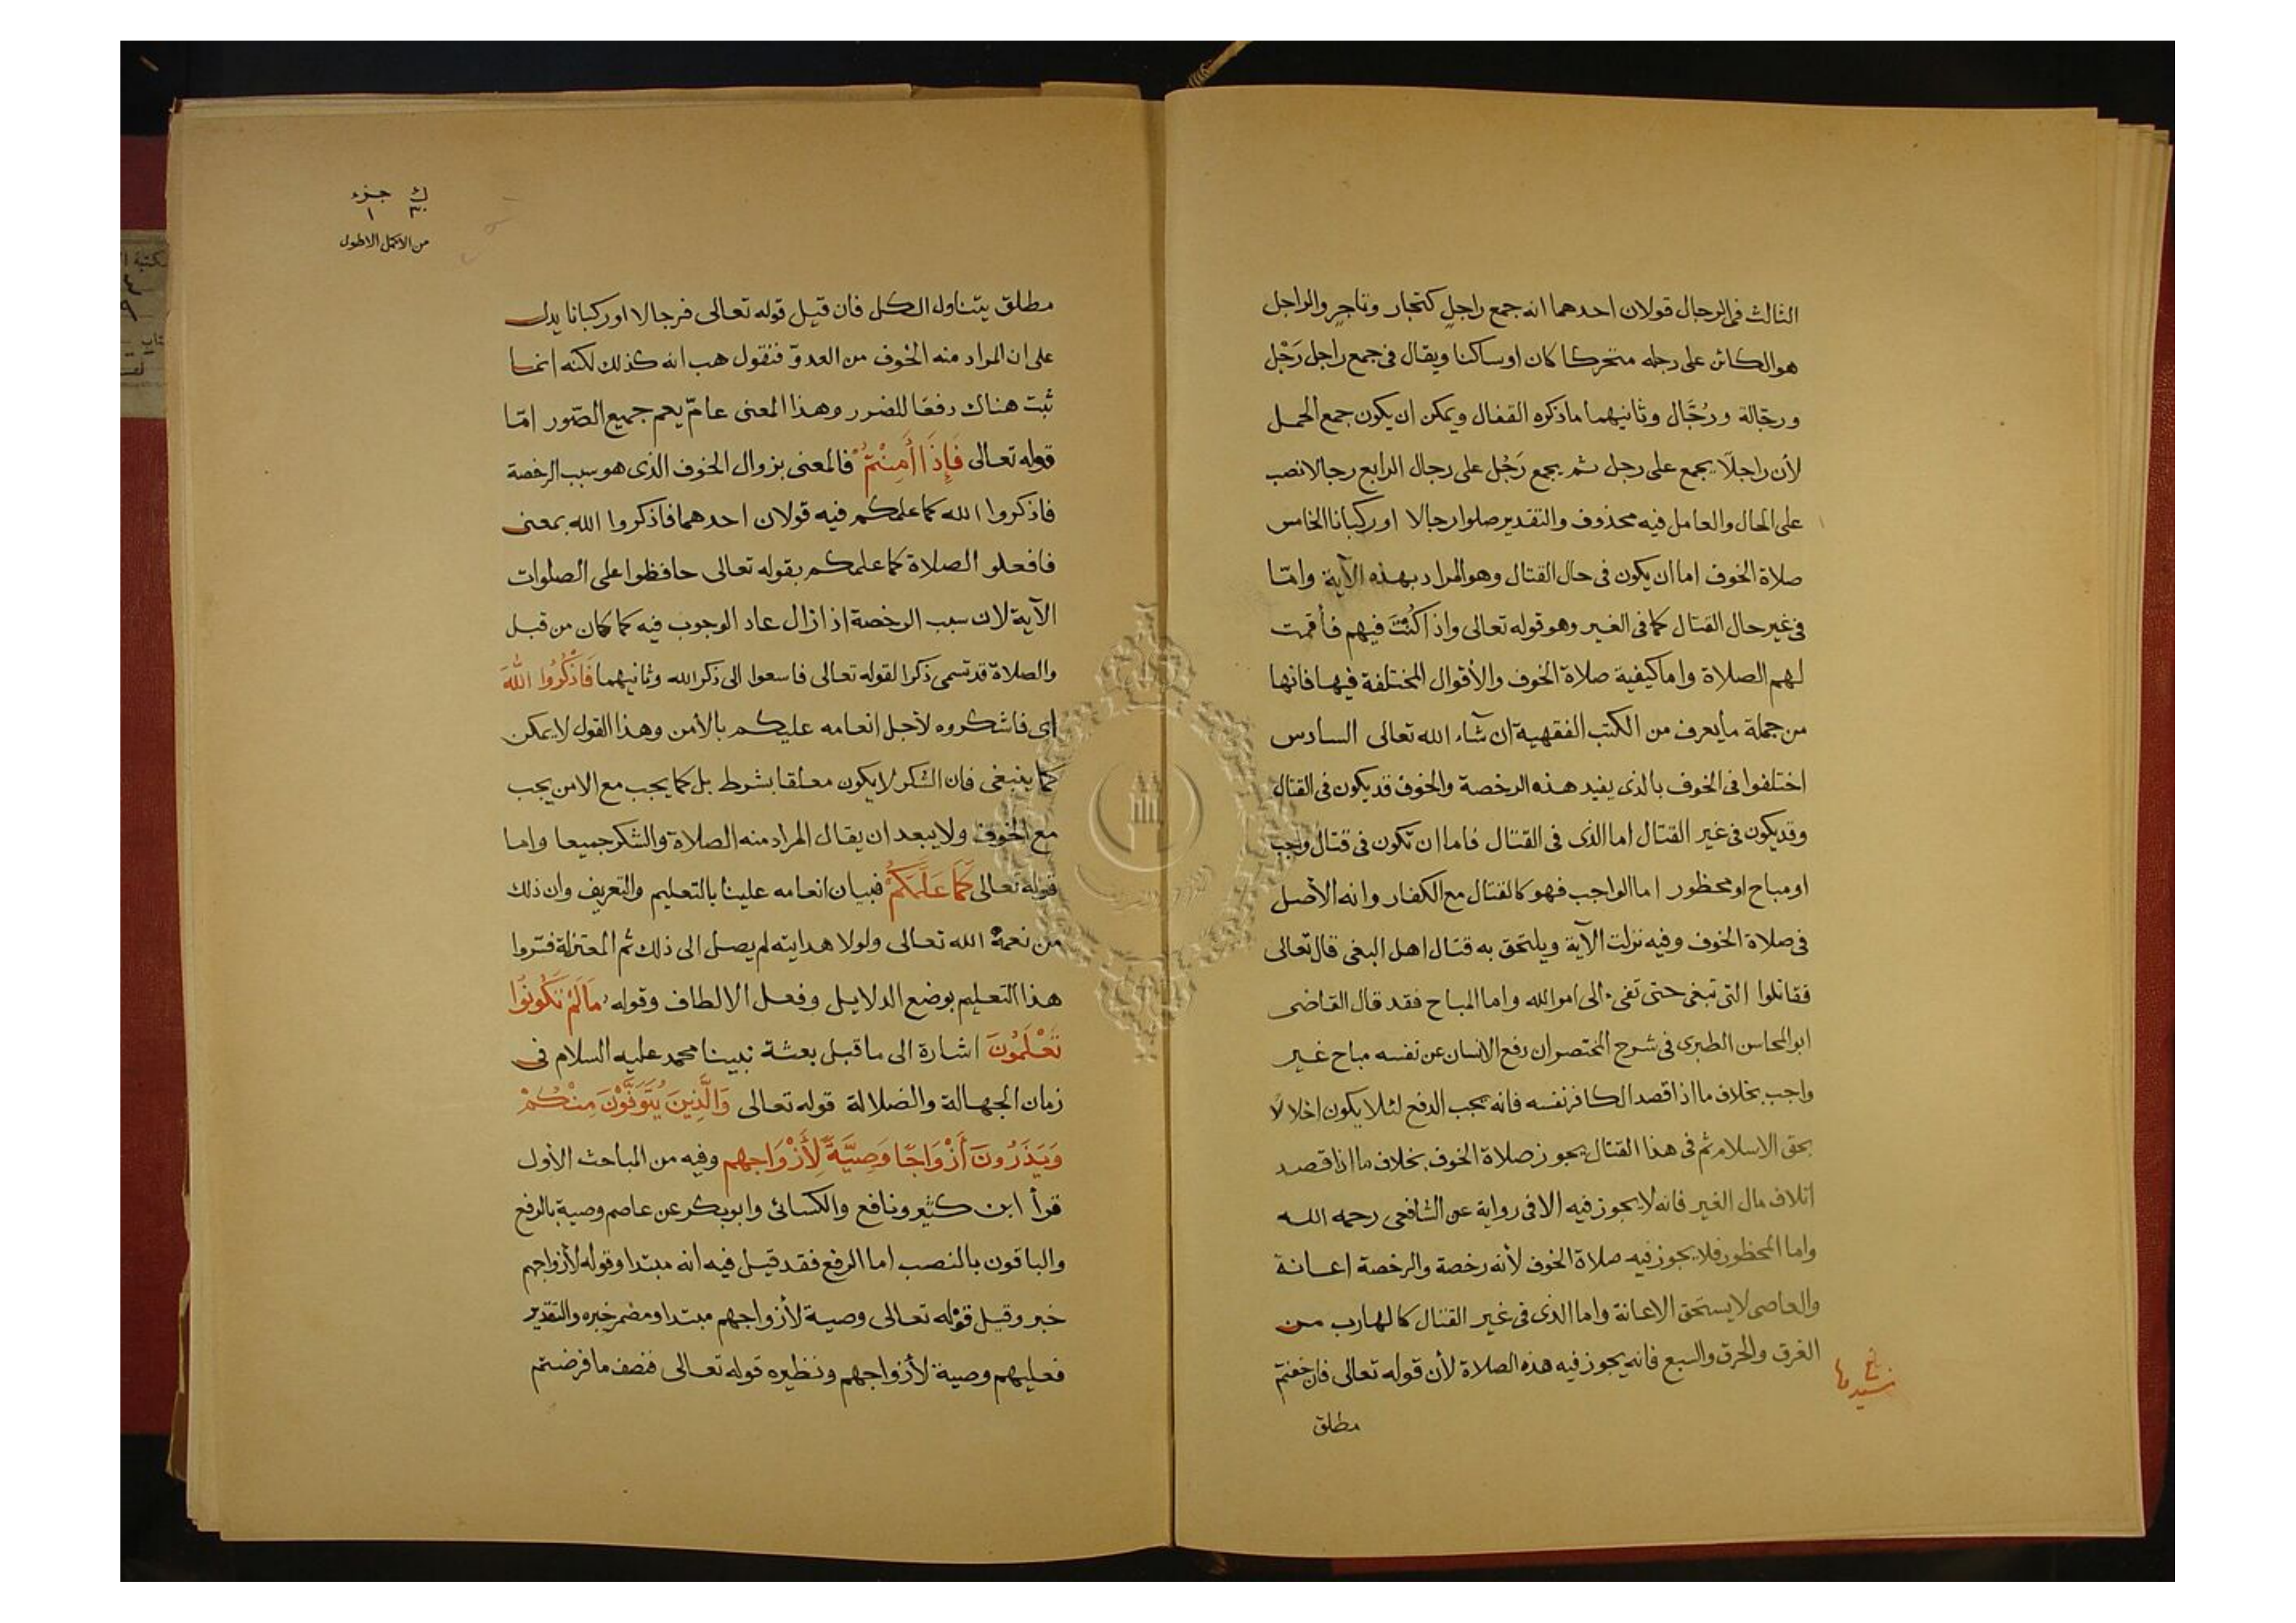 الثالث فى الرجال قولان احدهما انه جمع راجل كتجار وتاجر والراجل
هو الكائن على رجله متحركا كان او ساكنا ويقال فى جمع راجل رَجْل
ورجّالة ورُجَّال وثانيهما ماذكره القفال ويمكن ان يكون جمع الجمل
لأن راجلًا يجمع على رجل ثم يجمع رَجُل على رجال الرابع رجالا نصب
على الحال والعامل فيه محذوف والتقدير صلوا رجالا او ركبانا الخامس
صلاة الخوف اما ان يكون فى حال القتال وهو المراد بهذه الآية وامّا
فى غير حال القتال كما فى الغير وهو قوله تعالى واذا كُنْتَ فيهم فأقمت
لهم الصلاة واما كيفية صلاة الخوف والأقوال المختلفة فيها فانها
من جملة ما يعرف من الكتب الفقهية ان شاء الله تعالى السادس
اختلفوا فى الخوف بالذى يفيد هذه الرخصة والخوف قد يكون فى القتال
وقد يكون فى غير القتال اما الذى فى القتال فاما ان تكون فى قتال واجب
او مباح او محظور اما الواجب فهو كالقتال مع الكفار وانه الأصل
فى صلاة الخوف وفيه نزلت الآية ويلتحق به قتال اهل البغى قال تعالى
فقاتلوا التى تبغى حتى تفىء الى امر الله واما المباح فقد قال القاضى
ابو المحاسن الطبرى فى شرح المختصر ان دفع الانسان عن نفسه مباح غير
واجب بخلاف ما اذا قصد الكافر نفسه فانه يجب الدفع لئلا يكون اخلالًا
بحق الاسلام ثم فى هذا القتال يجوز صلاة الخوف بخلاف ما اذا قصد
اتلاف مال الغير فانه لا يجوز فيه الا فى رواية عن الشافعى رحمه الله
واما المحظور فلا يجوز فيه صلاة الخوف لأنه رخصة والرخصة اعانة
والعاصى لا يستحق الاعانة واما الذى فى غير القتال كالهارب من
الغرق والحرق والسبع فانه يجوز فيه هذه الصلاة لأن قوله تعالى فان خفتم
مطلق
ك جزء
٣٠ ١
من الاكمل الاطول
مطلق يتناول الكل فان قيل قوله تعالى فرجالا او ركبانا يدل
على ان المراد منه الخوف من العدوّ فنقول هب انه كذلك لكنه انما
ثبت هناك دفعًا للضرر وهذا المعنى عامّ يعم جميع الصّور امّا
قوله تعالى فَإِذَا أَمِنْتُمْ فالمعنى بزوال الخوف الذى هو سبب الرخصة
فاذكروا الله كما علمكم فيه قولان احدهما فاذكروا الله بمعنى
فافعلو الصلاة كما علمكم بقوله تعالى حافظوا على الصلوات
الآية لان سبب الرخصة اذا زال عاد الوجوب فيه كما كان من قبل
والصلاة قد تسمى ذكرا لقوله تعالى فاسعوا الى ذكر الله وثانيهما فَاذْكُرُوا اللهَ
اى فاشكروه لأجل انعامه عليكم بالأمن وهذا القول لا يمكن
كما ينبغى فان الشكر لا يكون معلقا بشرط بل كما يجب مع الامن يجب
مع الخوف ولا يبعد ان يقال المراد منه الصلاة والشكر جميعا واما
قوله تعالى كَمَا عَلَّمَكُمْ فبيان انعامه علينا بالتعليم والتعريف وان ذلك
من نعمة الله تعالى ولولا هدايته لم يصل الى ذلك ثم المعتزلة فسّروا
هذا التعليم بوضع الدلايل وفعل الالطاف وقوله مَالَمْ تَكُونُوا
تَعْلَمُونَ اشارة الى ما قبل بعثة نبينا محمد عليه السلام فى
زمان الجهالة والضلالة قوله تعالى وَالَّذِينَ يُتَوَفَّوْنَ مِنْكُمْ
وَيَذَرُونَ أَزْوَاجًا وَصِيَّةً لِأَزْوَاجِهِم وفيه من المباحث الأول
قرأ ابن كثير ونافع والكسائى وابو بكر عن عاصم وصية بالرفع
والباقون بالنصب اما الرفع فقد قيل فيه انه مبتدا وقوله لأزواجهم
خبر وقيل قوله تعالى وصية لأزواجهم مبتدا ومضمر خبره والتقدير
فعليهم وصية لأزواجهم ونظيره قوله تعالى فنصف ما فرضتم